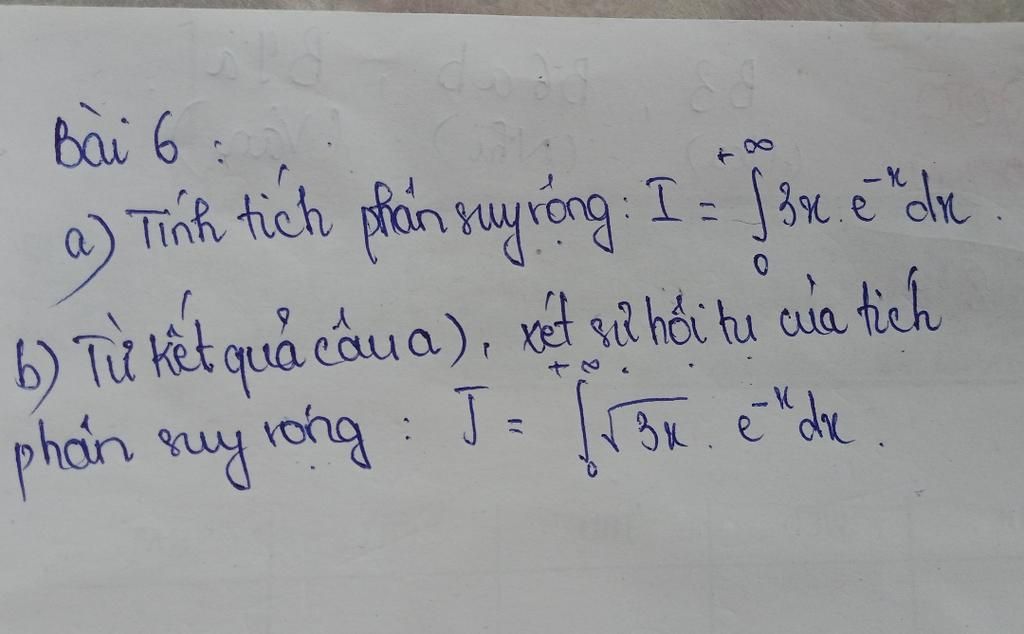 Bài 6 :
a) Tính tích phân suy rộng : I = ∫₀^{+∞} 3x . e^{-x} dx .
b) Từ kết quả câu a), xét sự hội tụ của tích
phân suy rộng : J = ∫₀^{+∞} √3x . e^{-x} dx .